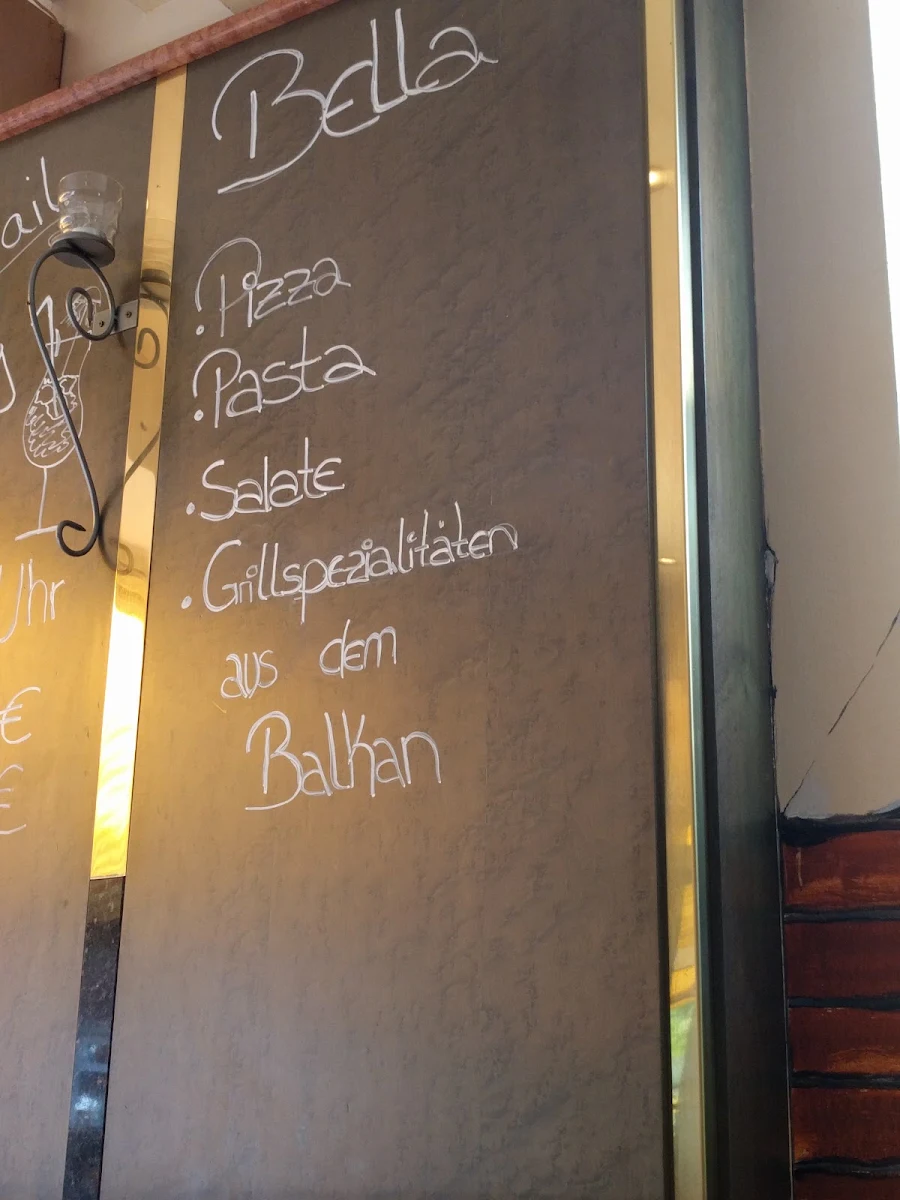 Bella
• Pizza
• Pasta
• Salate
• Grillspezialitäten
aus dem
Balkan
ail
Uhr
€
€